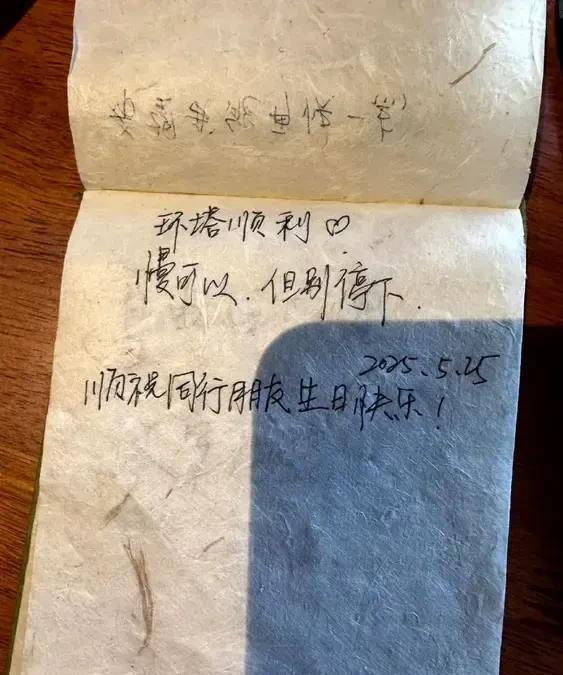 环塔顺利
慢可以.但别停下.
2025.5.25
顺祝同行朋友生日快乐!